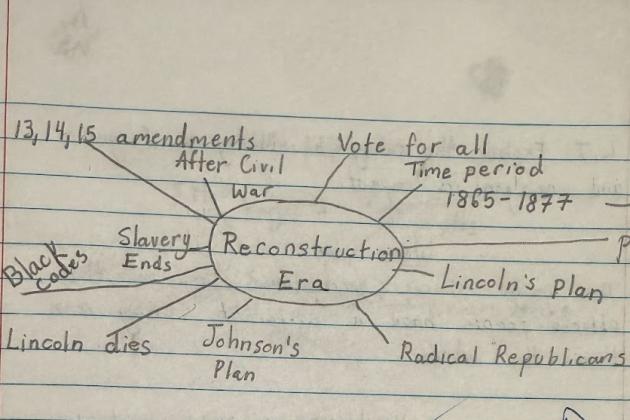 13, 14, 15 amendments
Vote for all
After Civil
War
Time period
1865-1877
Slavery
Ends
Reconstruction
Era
Black
Codes
Lincoln's plan
Lincoln dies
Johnson's
Plan
Radical Republicans